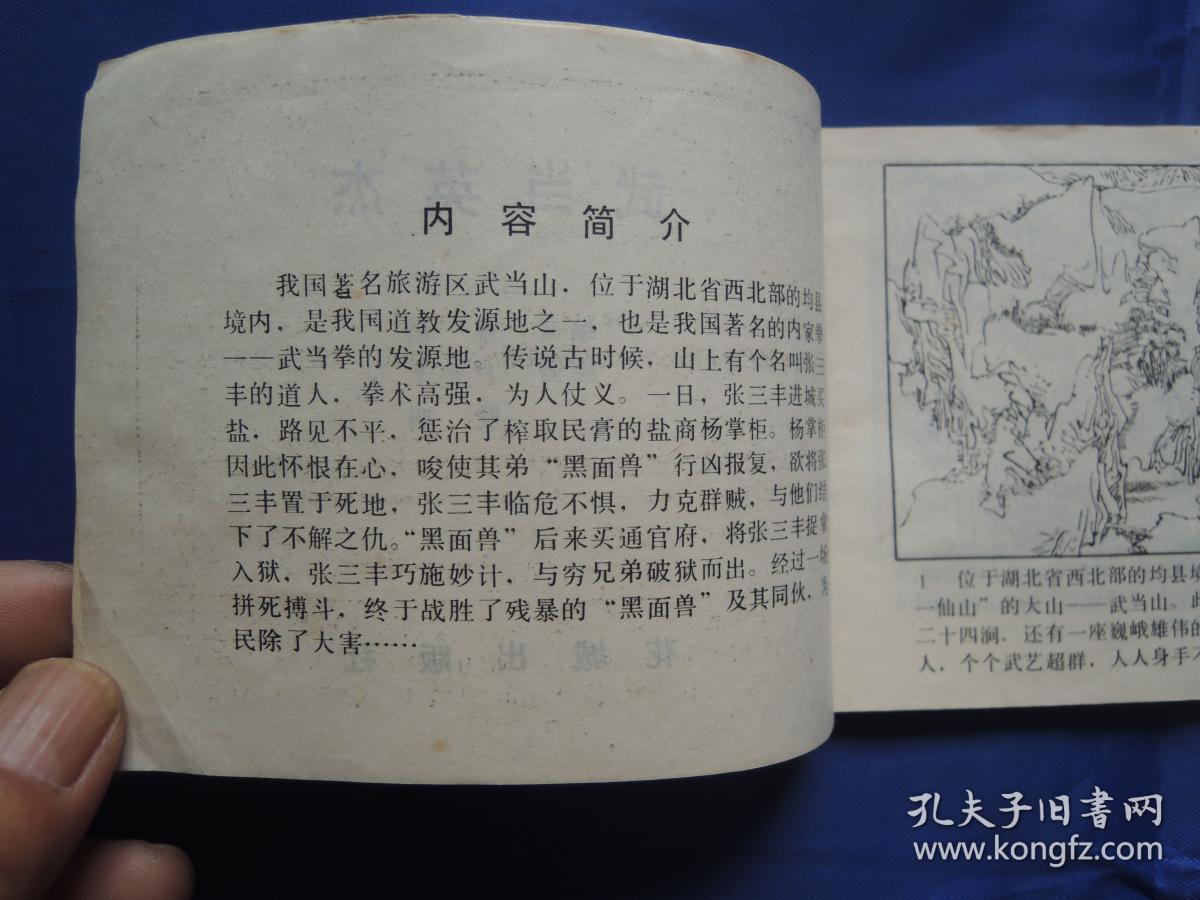 内容简介
我国著名旅游区武当山，位于湖北省西北部的均县
境内，是我国道教发源地之一，也是我国著名的内家拳
——武当拳的发源地。传说古时候，山上有个名叫张三
丰的道人，拳术高强，为人仗义。一日，张三丰进城买
盐，路见不平，惩治了榨取民膏的盐商杨掌柜。杨掌柜
因此怀恨在心，唆使其弟“黑面兽”行凶报复，欲将张
三丰置于死地，张三丰临危不惧，力克群贼，与他们结
下了不解之仇。“黑面兽”后来买通官府，将张三丰捉拿
入狱，张三丰巧施妙计，与穷兄弟破狱而出。经过一场
拼死搏斗，终于战胜了残暴的“黑面兽”及其同伙，为
民除了大害……
武当英杰
花城出版社
1 位于湖北省西北部的均县境
一仙山”的大山——武当山。此
二十四涧，还有一座巍峨雄伟的
人，个个武艺超群，人人身手不
孔夫子旧书网
www.kongfz.com